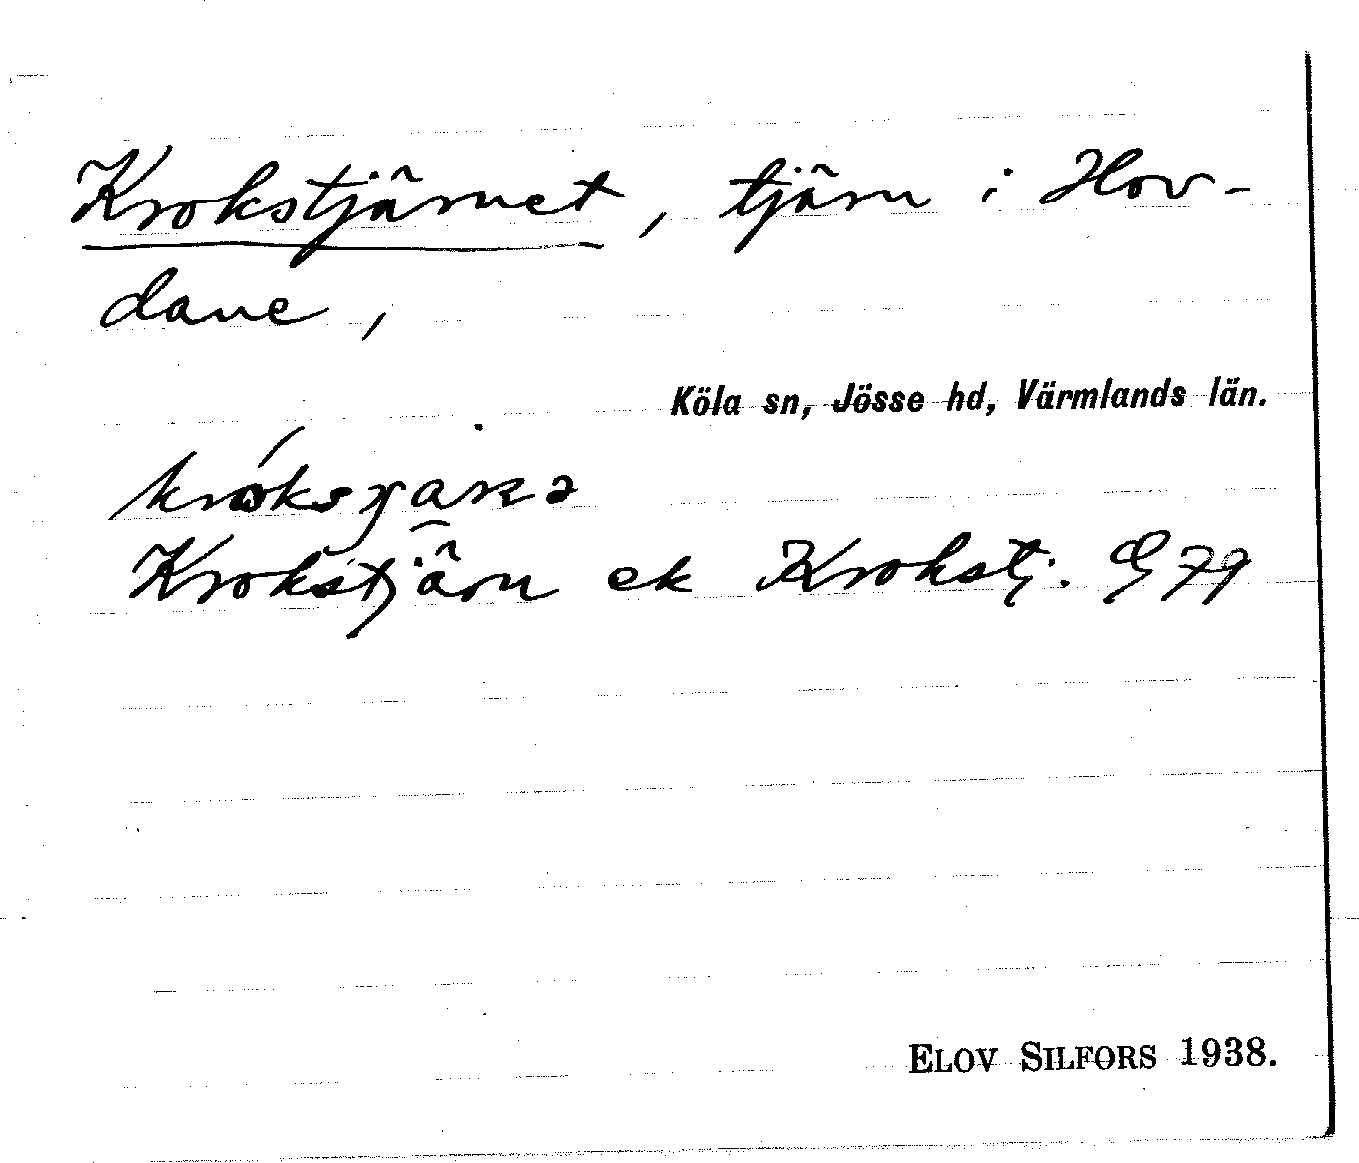 Krokstjärnet, tjärn i Hov-
dane,
Köla sn, Jösse hd, Värmlands län.
Krokstjärn ek Krokstj. G 79
ELOV SILFORS 1938.